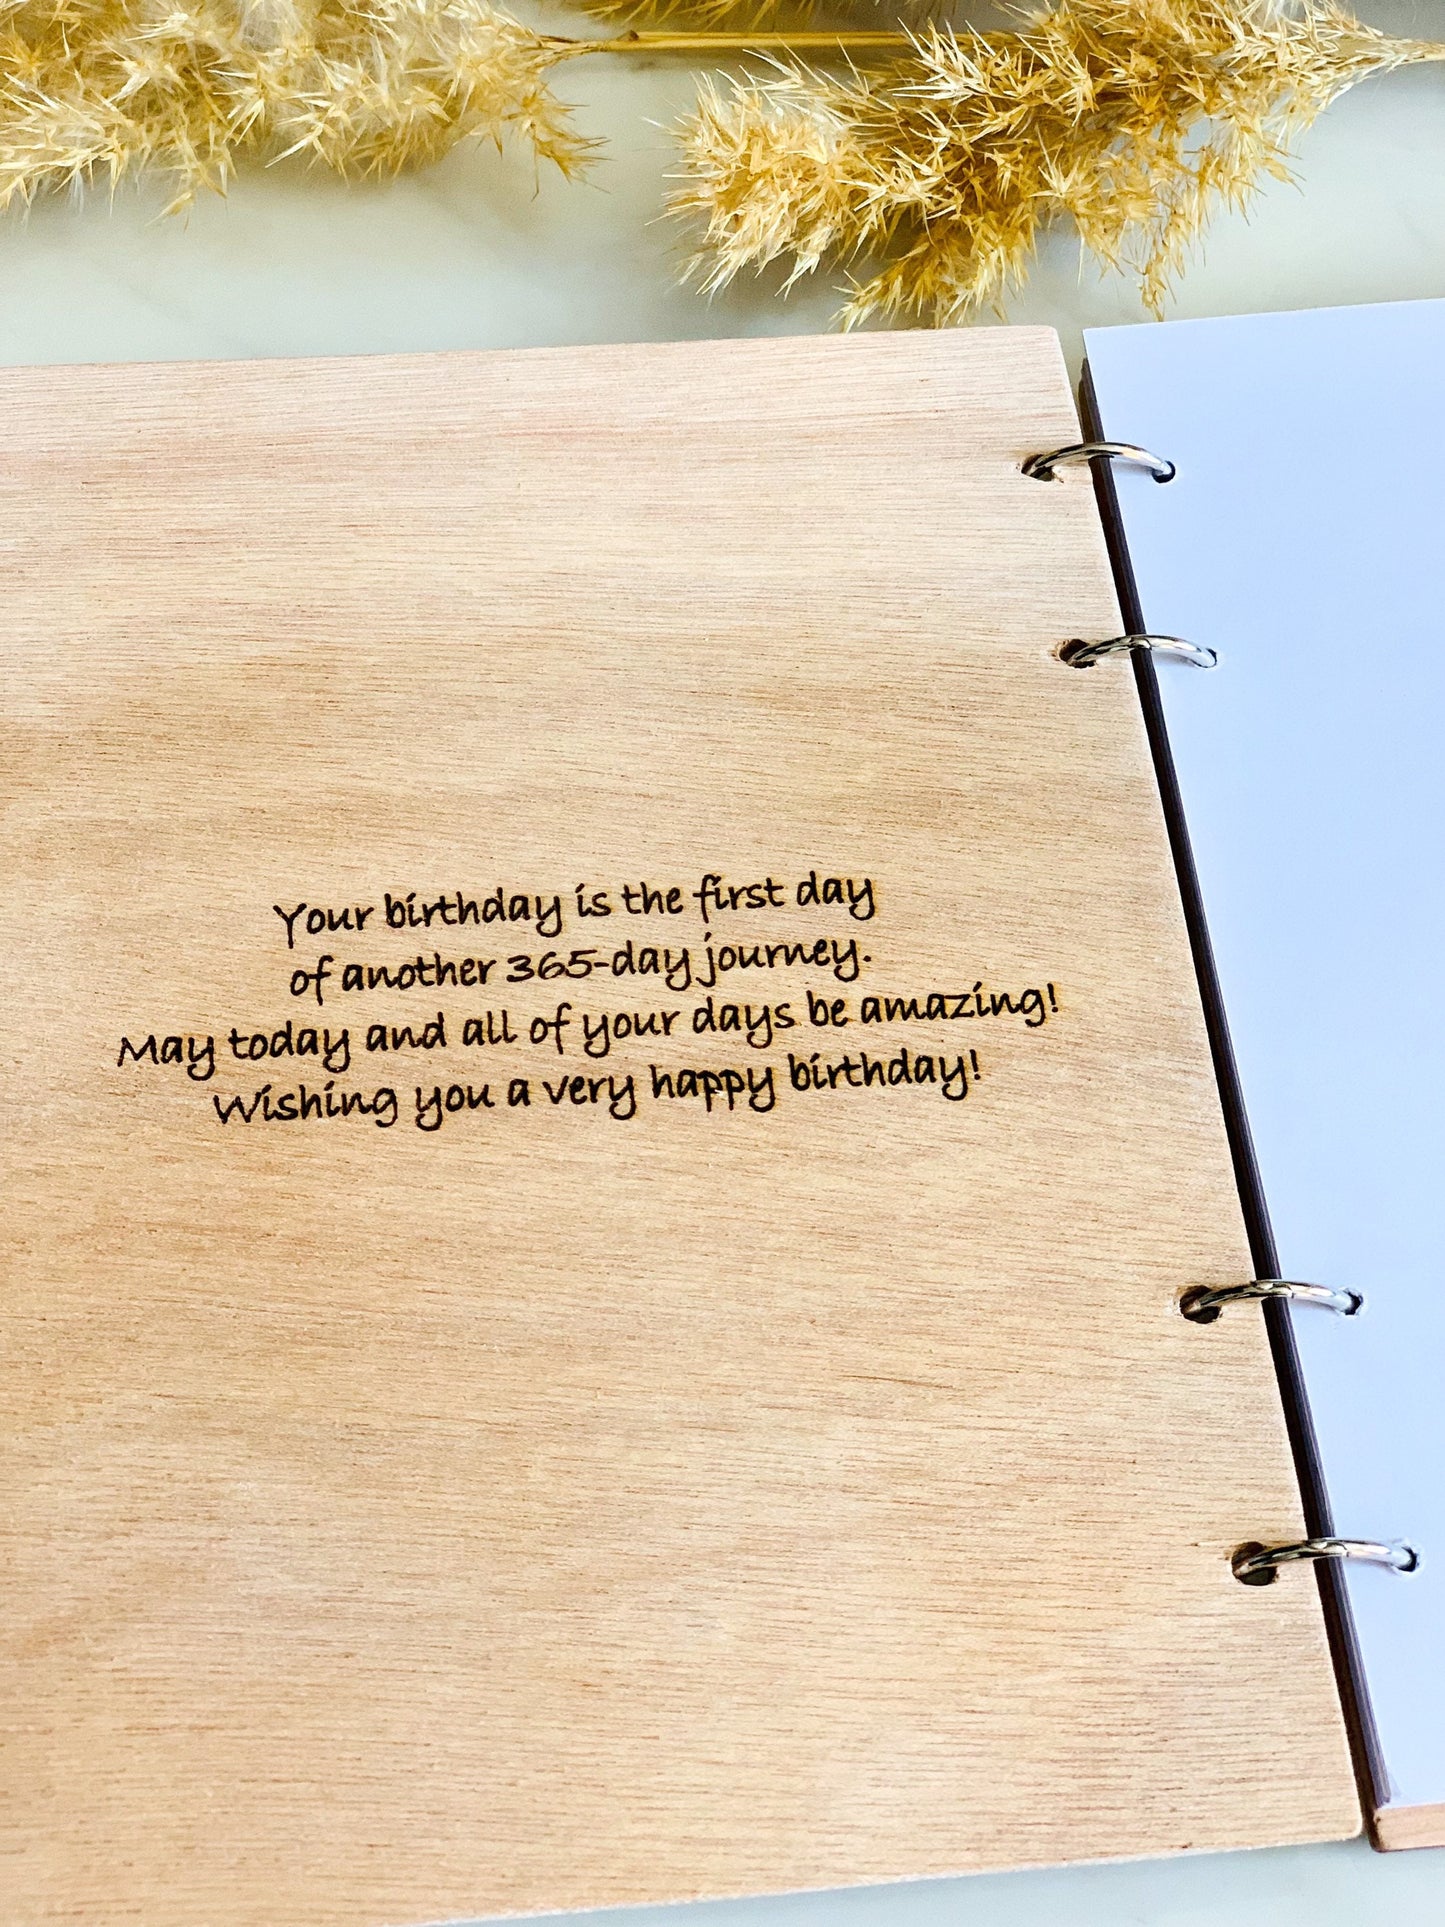 Your birthday is the first day
of another 365-day journey.
May today and all of your days be amazing!
Wishing you a very happy birthday!